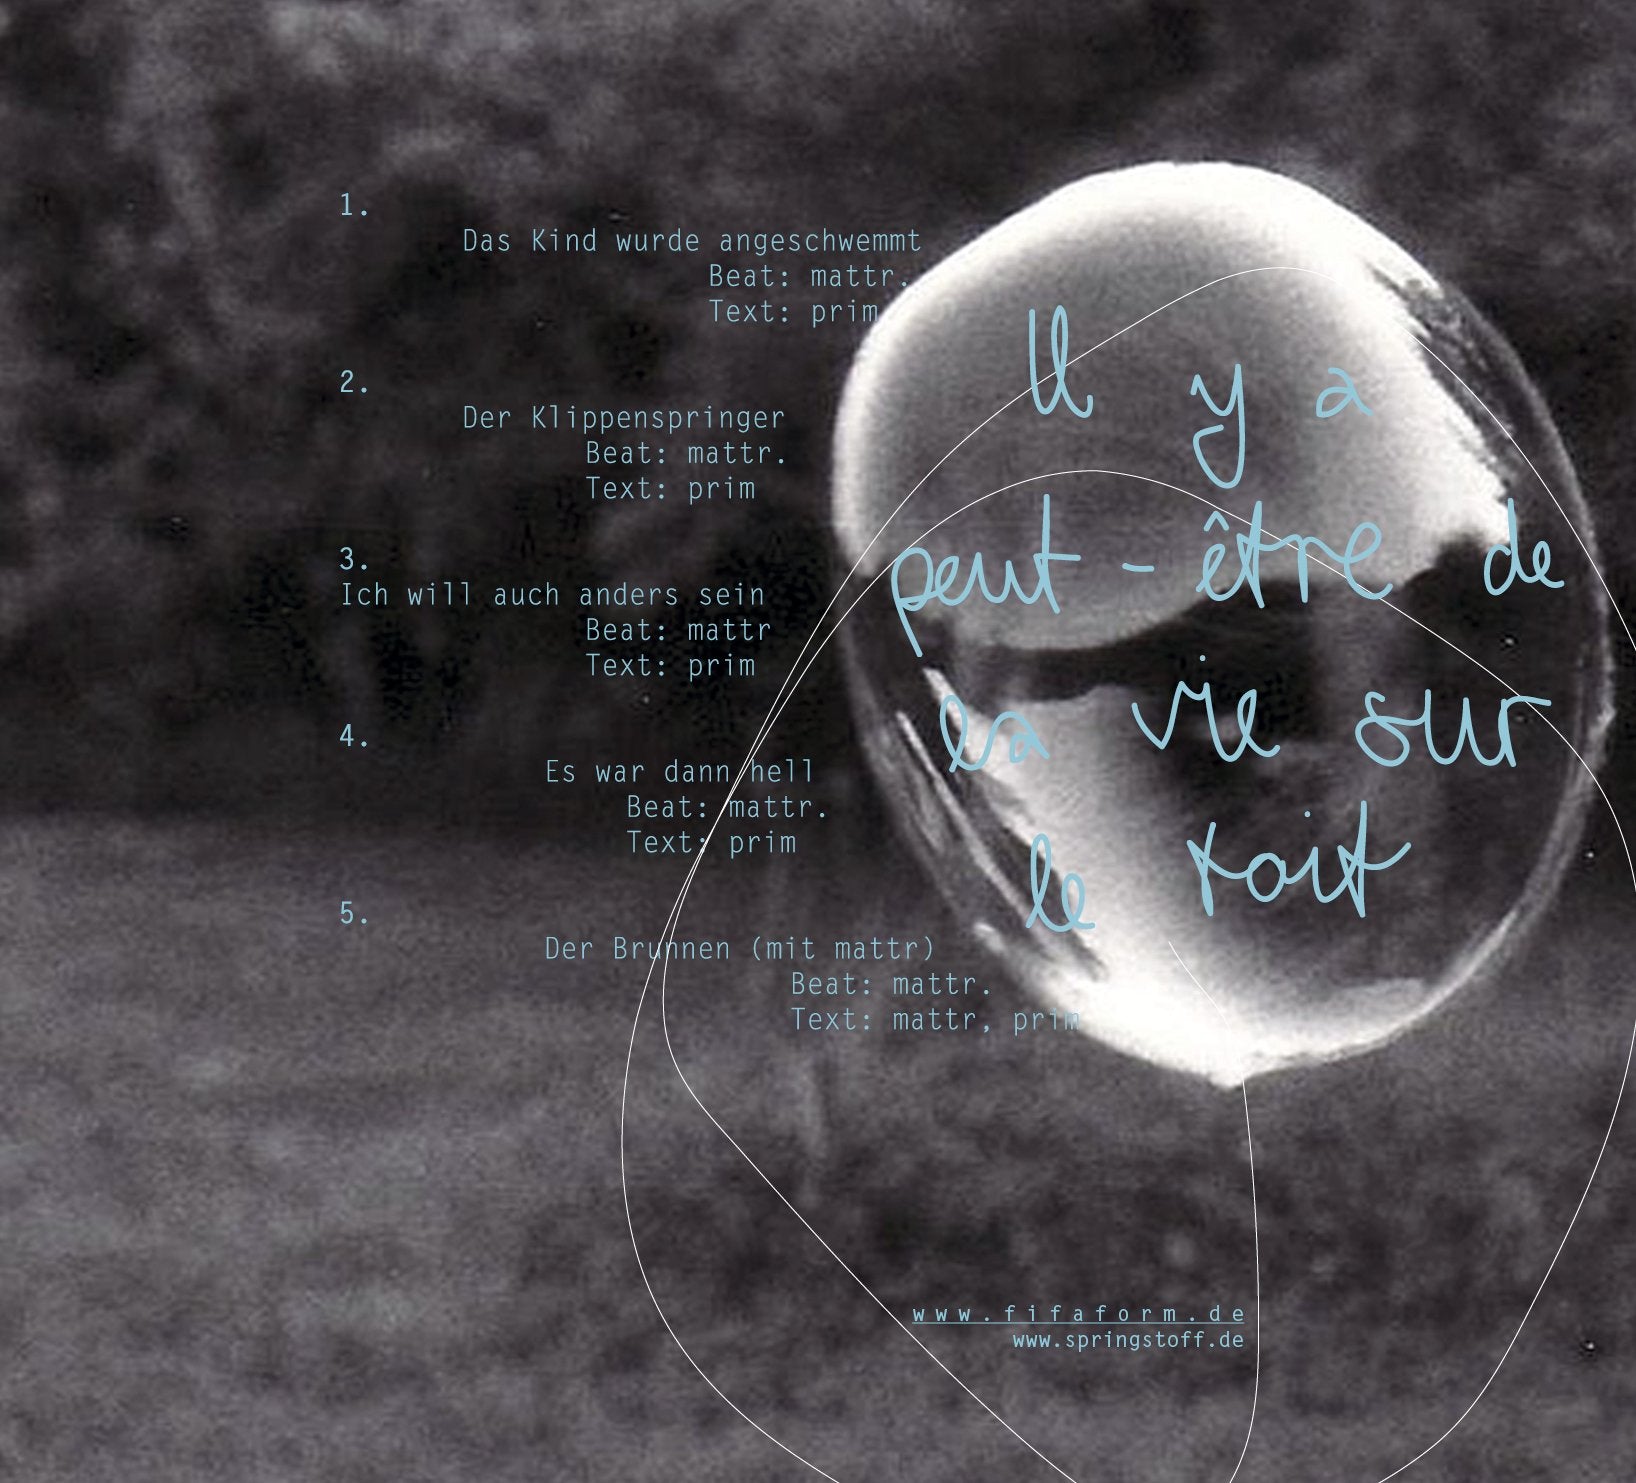 1.
Das Kind wurde angeschwemmt
Beat: mattr.
Text: prim
2.
Der Klippenspringer
Beat: mattr.
Text: prim
3.
Ich will auch anders sein
Beat: mattr
Text: prim
4.
Es war dann hell
Beat: mattr.
Text: prim
5.
Der Brunnen (mit mattr)
Beat: mattr.
Text: mattr, prim
Il y a
peut-être de
la vie sur
le toit
www.fifaform.de
www.springstoff.de